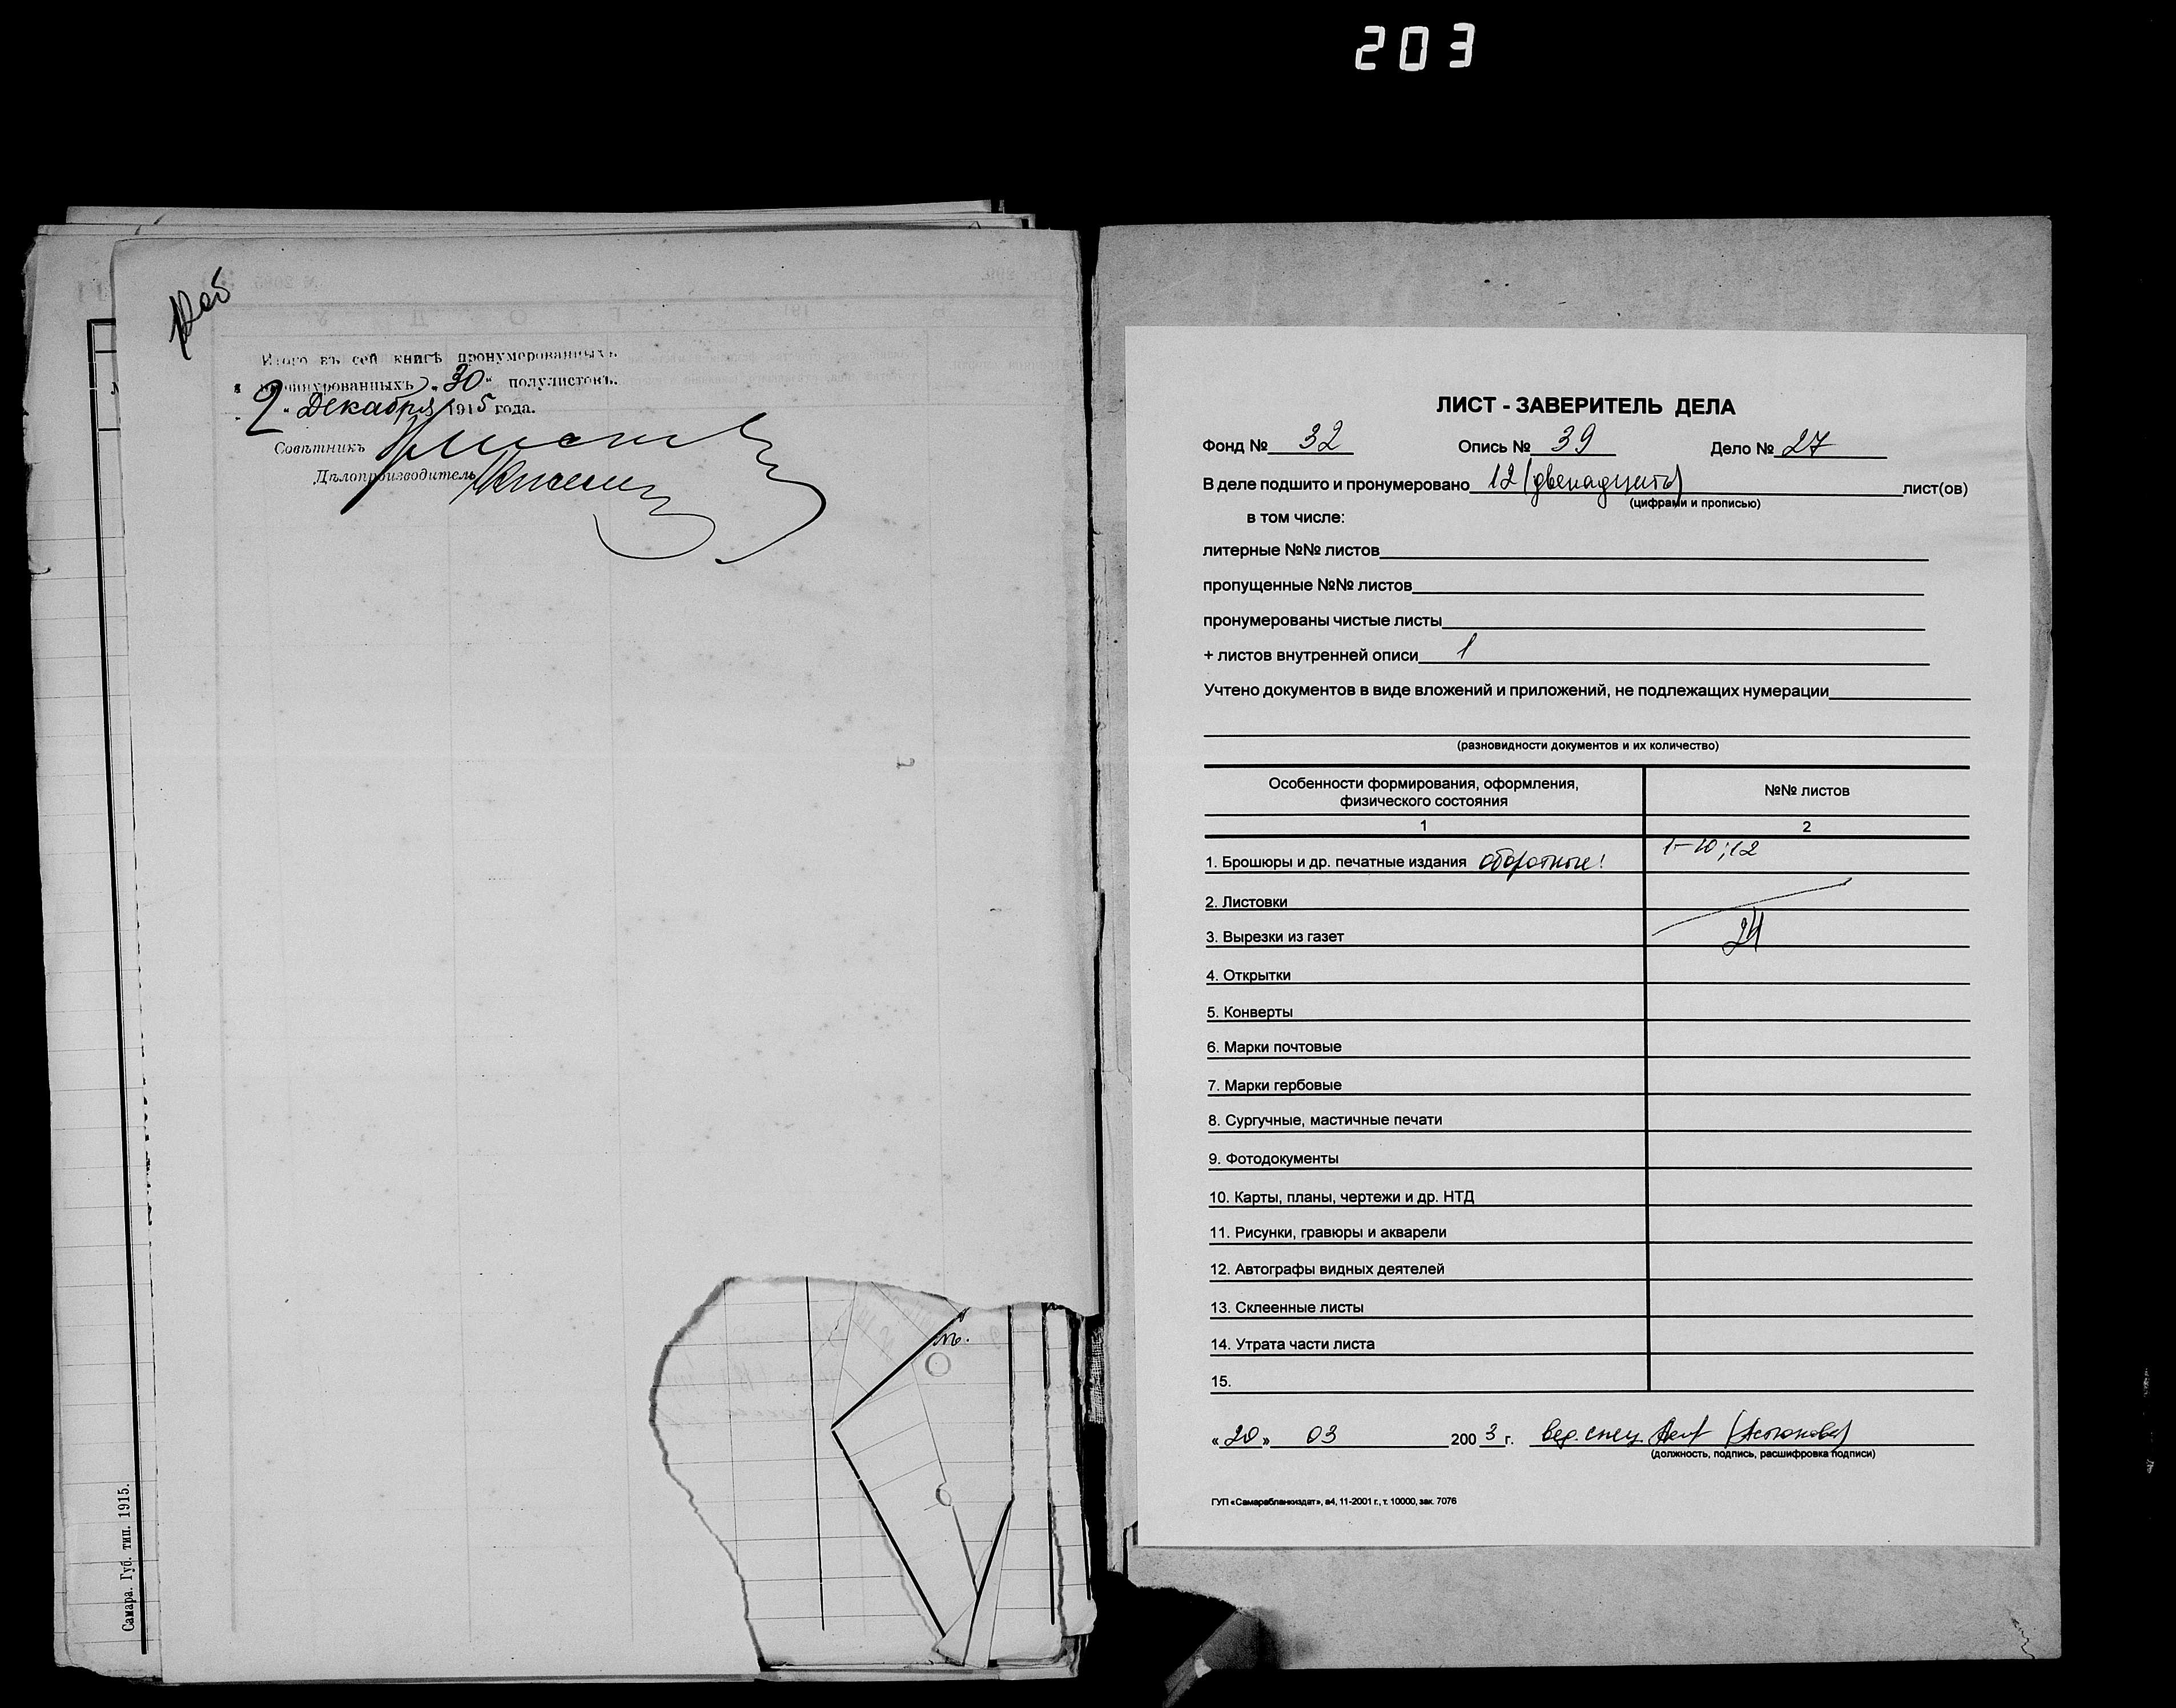 203
Итого въ сей книгѣ пронумерованныхъ
и шнурованныхъ „30“ полулистовъ.
„2“ Декабря 1915 года.
Совѣтникъ
Дѣлопроизводитель
Самара. Губ. тип. 1915.
ЛИСТ - ЗАВЕРИТЕЛЬ ДЕЛА
Фонд № 32 Опись № 39 Дело № 27
В деле подшито и пронумеровано 12 (двенадцать) лист(ов)
(цифрами и прописью)
в том числе:
литерные №№ листов
пропущенные №№ листов
пронумерованы чистые листы
+ листов внутренней описи 1
Учтено документов в виде вложений и приложений, не подлежащих нумерации
(разновидности документов и их количество)
Особенности формирования, оформления, физического состояния №№ листов
1 2
1. Брошюры и др. печатные издания оборотные! 1-10; 12
2. Листовки
3. Вырезки из газет 24
4. Открытки
5. Конверты
6. Марки почтовые
7. Марки гербовые
8. Сургучные, мастичные печати
9. Фотодокументы
10. Карты, планы, чертежи и др. НТД
11. Рисунки, гравюры и акварели
12. Автографы видных деятелей
13. Склеенные листы
14. Утрата части листа
15.
«20» 03 2003 г. вед. спец.
(должность, подпись, расшифровка подписи)
ГУП «Самарабланкиздат», а4, 11-2001 г., т. 10000, зак. 7076